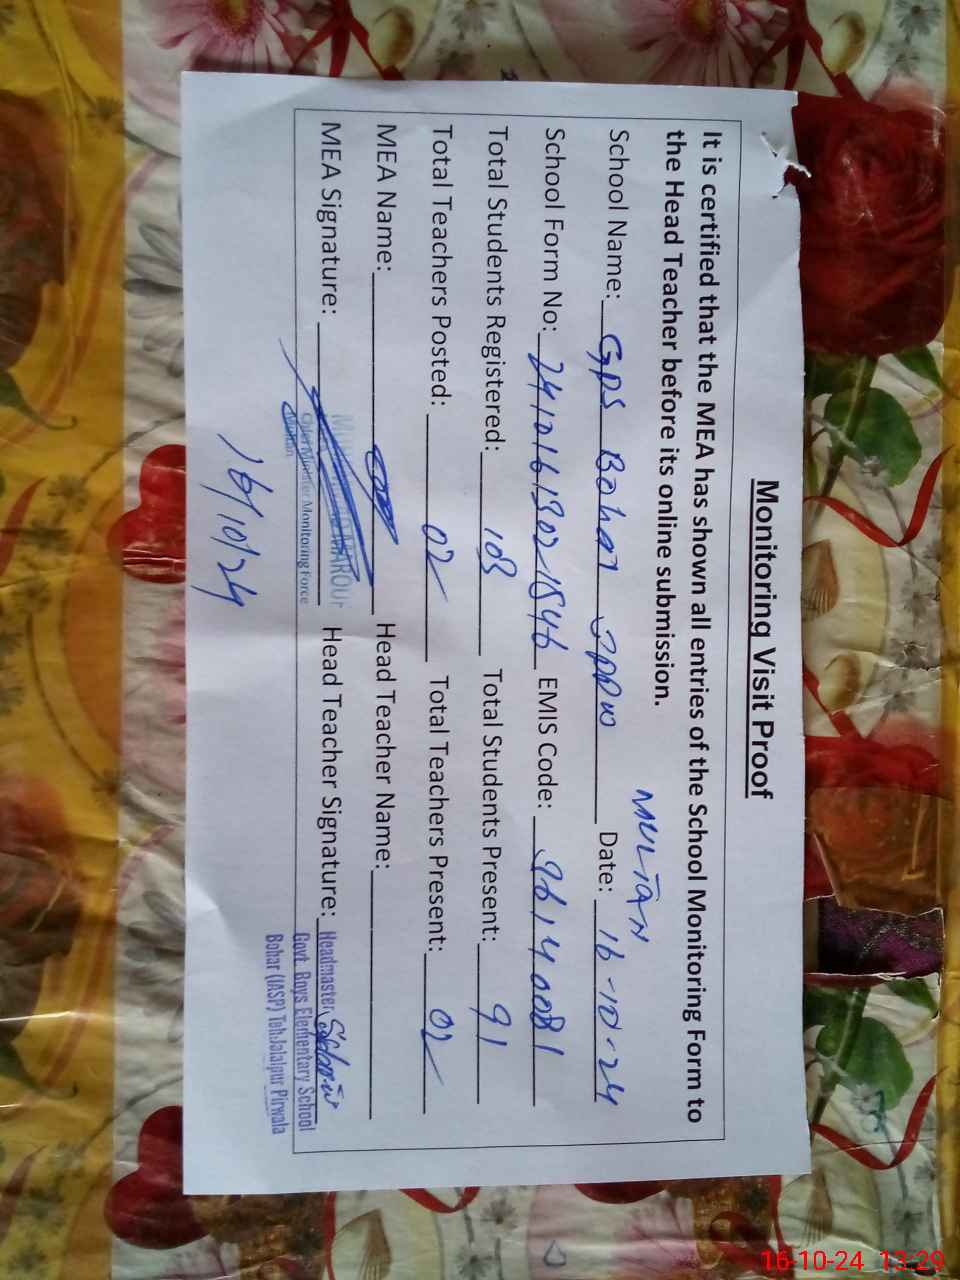 Monitoring Visit Proof
It is certified that the MEA has shown all entries of the School Monitoring Form to
the Head Teacher before its online submission.
MULTAN
School Name: GPS Bohar Date: 16-10-24
School Form No: 24101613021546 EMIS Code: 36140081
Total Students Registered: 103 Total Students Present: 91
Total Teachers Posted: 02 Total Teachers Present: 02
MEA Name: Head Teacher Name:
MEA Signature: Head Teacher Signature:
Chief Minister Monitoring Force
Multan
Headmaster
Govt. Boys Elementary School
Bohar (IASP) Teh.Jalalpur Pirwala
16/10/24
16-10-24 13:29